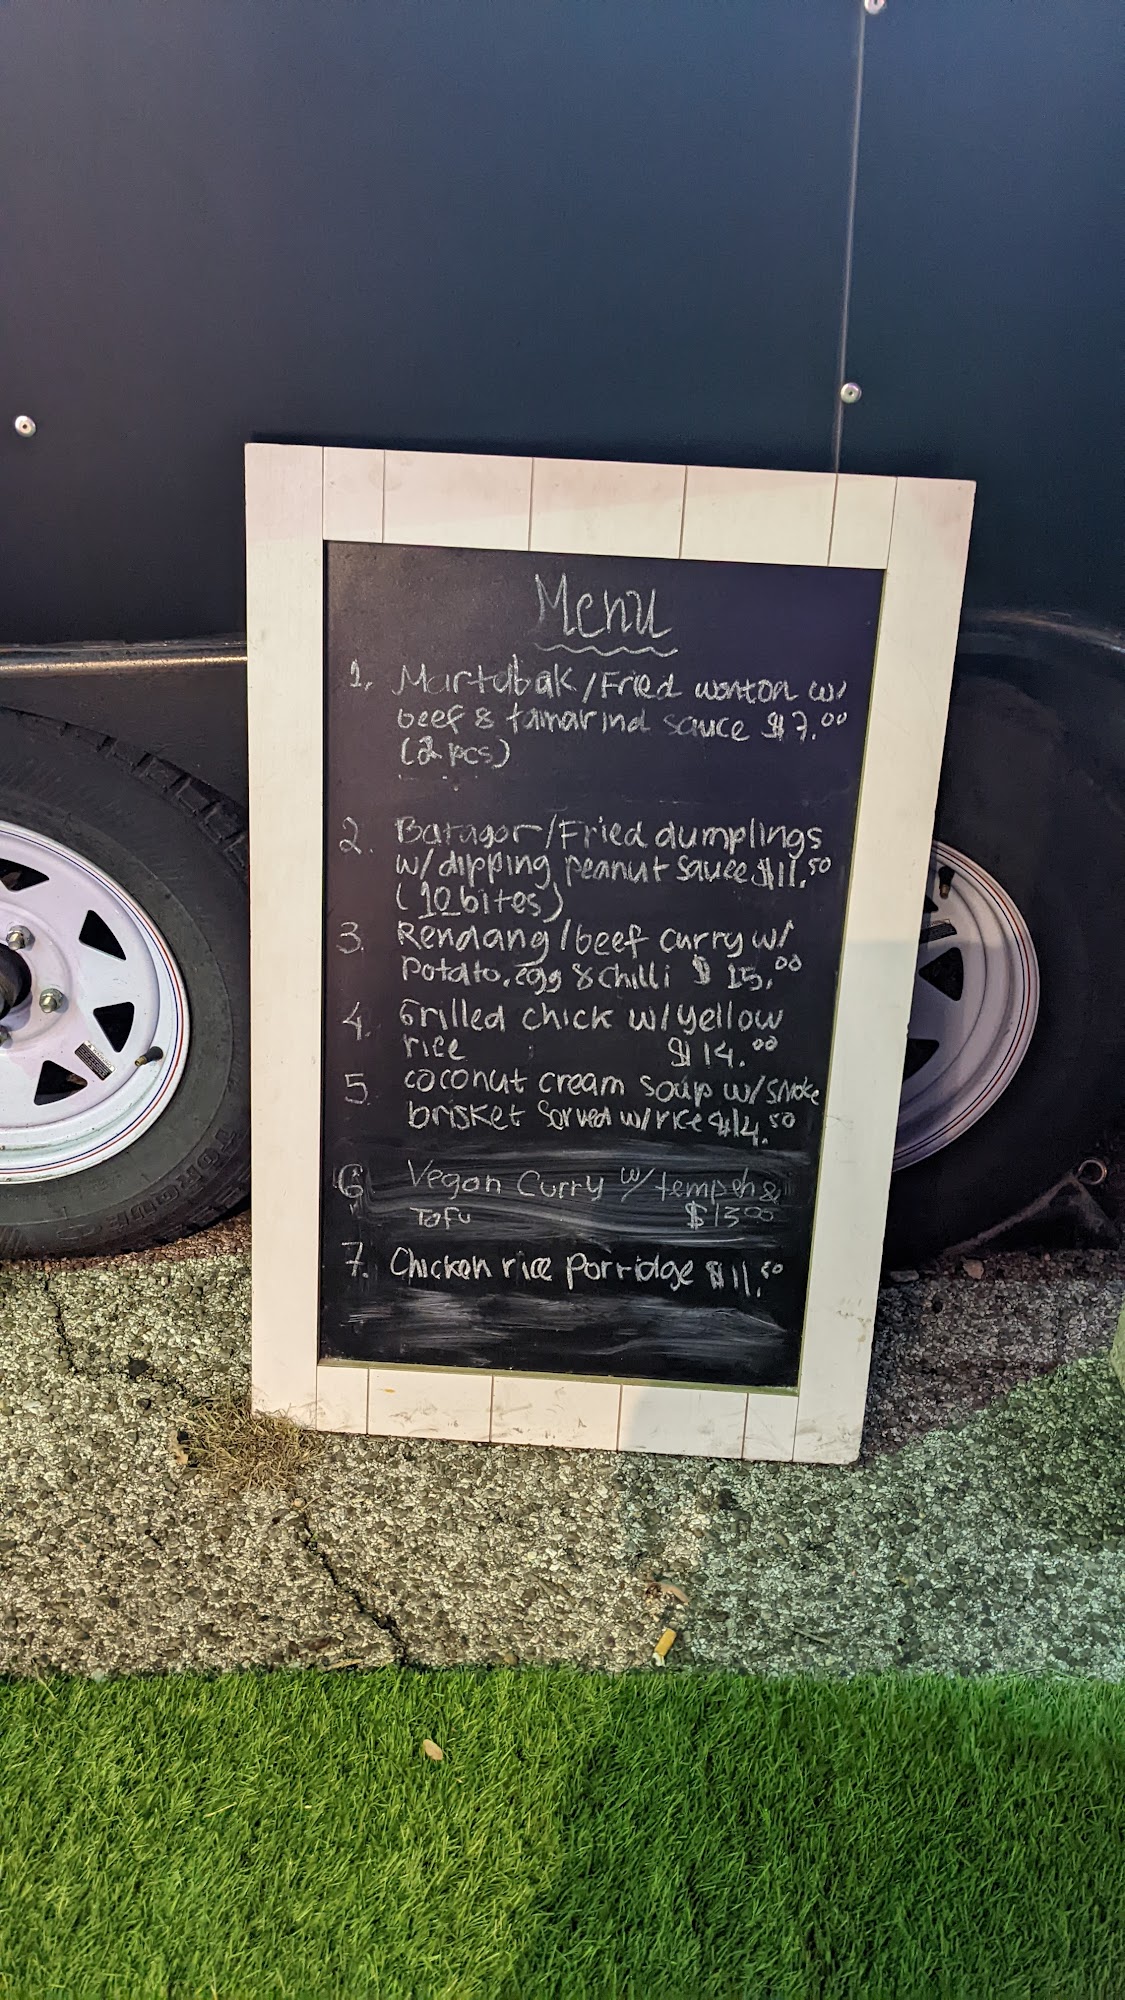 Menu
1. Martabak/Fried wonton w/
beef & tamarind sauce $7.00
(2 pcs)
2. Batagor/Fried dumplings
w/dipping peanut sauce $11.50
(10 bites)
3. Rendang/beef curry w/
potato, egg & chilli $15.00
4. Grilled chick w/yellow
rice $14.00
5. coconut cream soup w/smoke
brisket served w/rice $14.50
6 Vegan Curry w/tempeh &
Tofu $13.00
7. Chicken rice Porridge $11.50